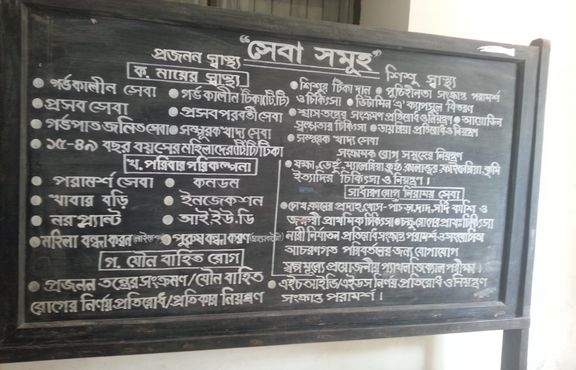 "সেবা সমূহ"
প্রজনন স্বাস্থ্য
ক. মায়ের স্বাস্থ্য
গর্ভকালীন সেবা
গর্ভকালীন টিকা(টিটি)
প্রসব সেবা
প্রসবপরবর্তী সেবা
গর্ভপাত জনিত সেবা
সম্পূরক খাদ্য সেবা
১৫-৪৯ বছর বয়সের মহিলাদের টিটি টিকা
খ. পরিবার পরিকল্পনা
পরামর্শ সেবা
কনডম
খাবার বড়ি
ইনজেকশন
নরপ্ল্যান্ট
আই,ইউ,ডি
মহিলা বন্ধ্যাকরন
পুরুষ বন্ধ্যাকরণ
গ. যৌন বাহিত রোগ
প্রজনন তন্ত্রের সংক্রমণ/যৌন বাহিত
রোগের নির্ণয় প্রতিরোধ/প্রতিকার নিয়ন্ত্রণ
শিশু স্বাস্থ্য
শিশুর টিকা দান
পুষ্টিহীনতা সংক্রান্ত পরামর্শ
ও চিকিৎসা
ভিটামিন 'এ' ক্যাপসুল বিতরণ
শ্বাসতন্ত্রের সংক্রমণ প্রতিরোধ ও নিয়ন্ত্রণ
আয়োডিন
স্বল্পতার চিকিৎসা
ডায়রিয়া প্রতিরোধ ও নিয়ন্ত্রণ
সম্পূরক খাদ্য সেবা
সংক্রামক রোগ সমূহের নিয়ন্ত্রণ
যক্ষা, ডেঙ্গু, ম্যালেরিয়া, কুষ্ঠ, কালাজ্বর, ফাইলেরিয়া, কৃমি
ইত্যাদির চিকিৎসা ও নিয়ন্ত্রণ।
সাধারণ রোগ নিরাময় সেবা
চোখ, কানের প্রদাহ, খোস-পাঁচড়া, দাদ, সর্দি কাশি ও
জরুরী প্রাথমিক চিকিৎসা
নারী নির্যাতন প্রতিরোধ সংক্রান্ত পরামর্শ ও সহযোগিতা
আচরণগত পরিবর্তনের জন্য যোগাযোগ
স্বল্প মূল্যে প্রয়োজনীয় প্যাথলজিক্যাল পরীক্ষা।
এইচআইভি/এইডস নির্ণয় প্রতিরোধ ও নিয়ন্ত্রণ
সংক্রান্ত পরামর্শ।